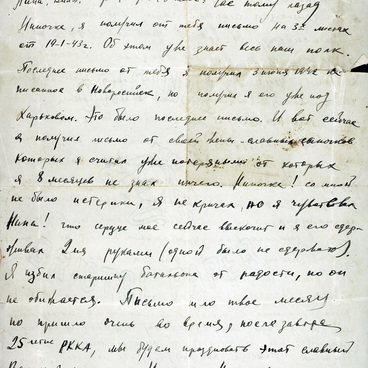 час тому назад
Ниночка, я получил от тебя письмо на 3х листах
от 19-1-43г. Об этом уже знает весь наш полк.
Последнее письмо от тебя я получил 3 июня 1942
писанное в Новоросийск, но получил я его уже под
Харьковом. Это было последнее письмо. И вот сейчас
я получил письмо от своей жены славных сыночков
которых я считал уже потерянными от которых
я 8 месяцев не знал ничего. Ниночка! со мной
не было истерики, я не кричал, но я чувствовал
Нина! что сердце мое сейчас выскочит и я его сдер-
живал 2мя руками (одной было не сдержать).
Я избил старшину батальона от радости, но он
не обижается. Письмо шло твое месяц
но пришло очень во время, послезавтра
25 летие РККА, мы будем праздновать этот славный